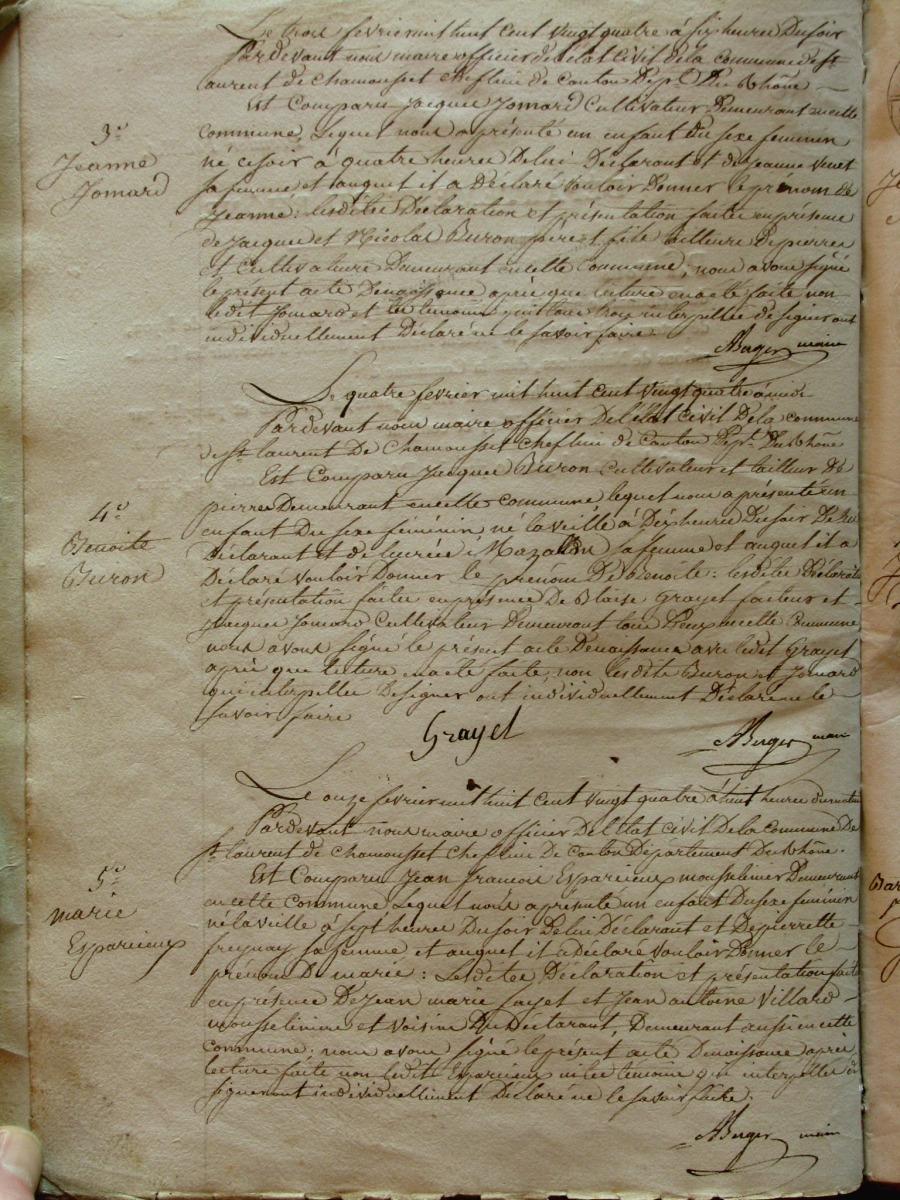 Le trois fevrier mil huit cent vingt quatre à six heures du soir
Pardevant nous maire officier de l'état civil de la commune de st
laurent de Chamousset chef lieu de canton dépt. du Rhône
Est Comparu Jacques Jomard Cultivateur demeurant en cette
commune, lequel nous a présenté un enfant du sexe feminin
né ce soir à quatre heures de lui déclarant et de jeanne
sa femme et auquel il a déclaré vouloir donner le prénom de
jeanne : lesdites déclaration et présentation faites en présence
de jacques et Nicolas Buron père et fils tailleurs de pierres
et cultivateurs demeurant en cette commune, nous avons signé
le present acte de naissance après que lecture en a été faite non
ledit Jomard et les temoins qui tous trois interpellés de signer ont
individuellement déclaré ne le savoir faire.
3e
Jeanne
Jomard
ABerger maire
Le quatre fevrier mil huit cent vingt quatre à midi
Pardevant nous maire officier de l'état civil de la commune
de st laurent de Chamousset chef lieu de canton dépt. du Rhône
Est Comparu Jacques Buron cultivateur et tailleur de
pierres demeurant en cette commune, lequel nous a présenté un
enfant du sexe féminin né la veille à dix heures du soir de lui
déclarant et de sa femme et auquel il a
déclaré vouloir donner le prénom de Benoite : lesdites déclaration
et présentation faites en présence de Blaise Grayel facteur et
jacques Jomard cultivateur demeurant tous deux en cette commune
nous avons signé le présent acte de naissance avec ledit Grayel
après que lecture en a été faite, non lesdits Buron et Jomard
qui interpellés de signer ont individuellement déclaré ne le
savoir faire
4e
Benoite
Buron
Grayel
ABerger maire
Le onze fevrier mil huit cent vingt quatre à huit heures du matin
Pardevant nous maire officier de l'état civil de la commune de
st laurent de Chamousset chef lieu de canton département du Rhône.
Est Comparu Jean francois Esparcieux mousselinier demeurant
en cette commune lequel nous a présenté un enfant du sexe féminin
né la veille à sept heures du soir de lui déclarant et de pierrette
sa femme et auquel il a déclaré vouloir donner le
prénom de marie : lesdites déclaration et présentation faites
en présence de jean marie fayet et jean antoine Villard
mousseliniers et voisins du déclarant, demeurant aussi en cette
commune ; nous avons signé le présent acte de naissance après
lecture faite non ledit Esparcieux ni les temoins qui interpellés de
signer ont individuellement déclaré ne le savoir faire.
5e
marie
Esparcieux
ABerger maire
Bar